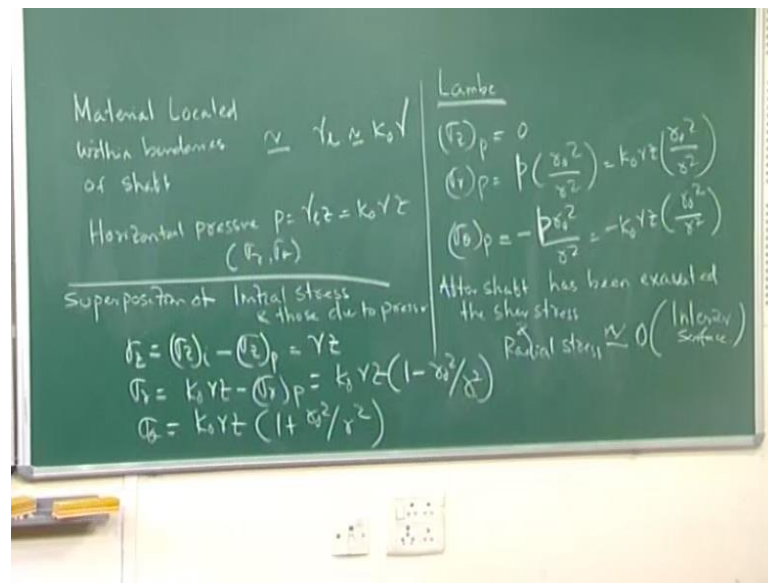 Material Located
within bundaries ≃ γ_l ≃ K₀γ
of shaft
Horizontal pressure p = γ_l z = K₀γz
(σ_r, σ_θ)
Superposition of Initial stress
& those due to pressure
σ_z = (σ_z)_i − (σ_z)_p = γz
σ_r = K₀γz − (σ_r)_p = K₀γz(1 − r₀²/r²)
σ_θ = K₀γz (1 + r₀²/r²)
Lambe
(σ_z)_p = 0
(σ_r)_p = p(r₀²/r²) = K₀γz(r₀²/r²)
(σ_θ)_p = −p r₀²/r² = −K₀γz(r₀²/r²)
After shaft has been excavated
the shear stress
& Radial stress ≃ 0 (Interior Surface)